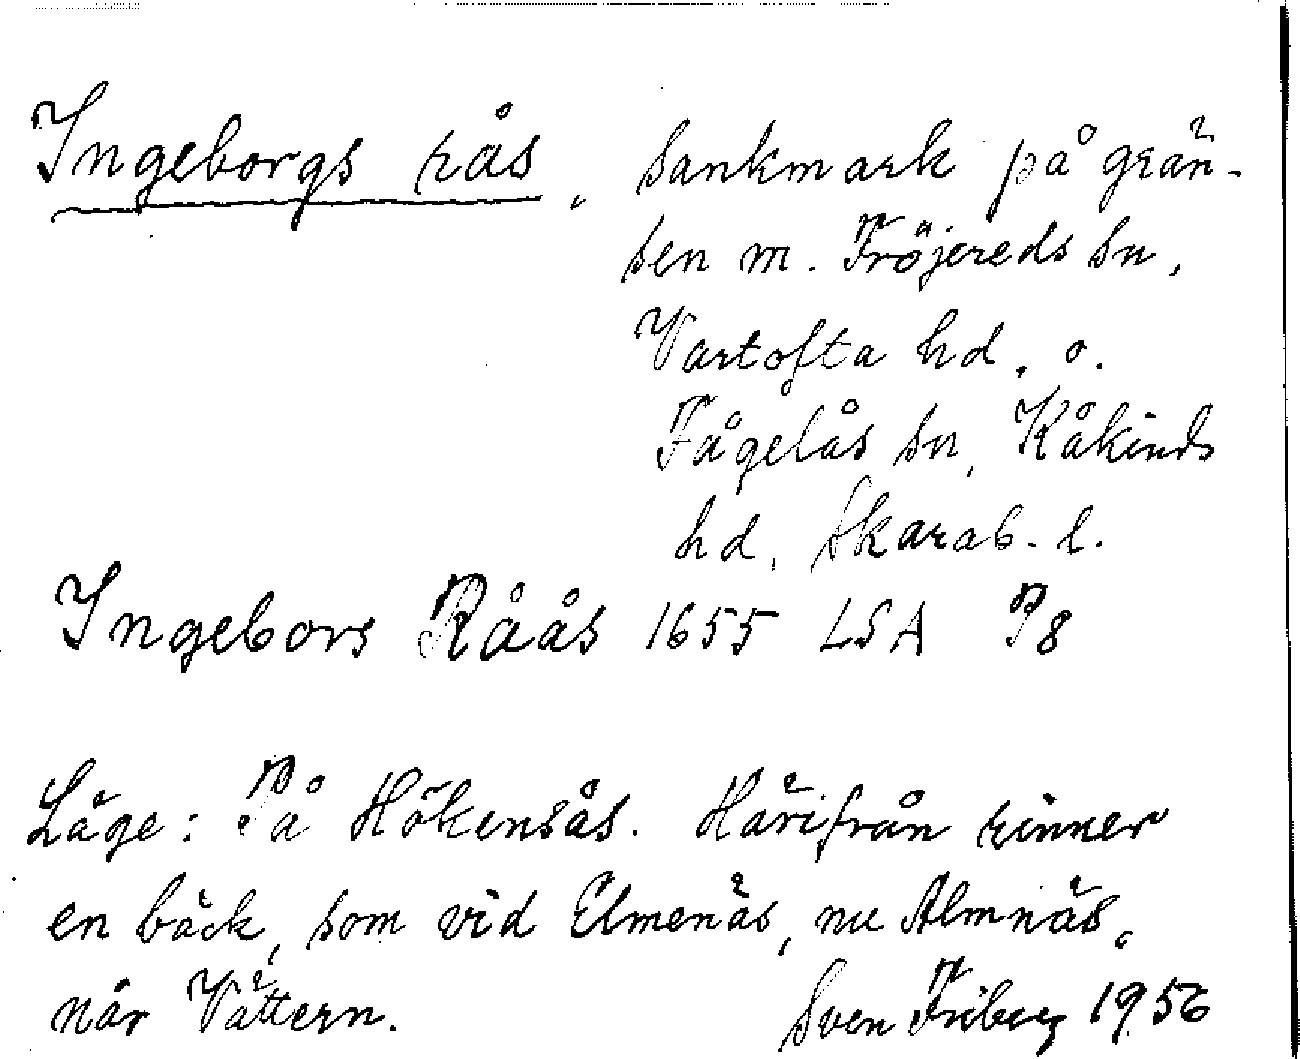 Ingeborgs rås, sankmark på grän-
sen m. Fröjereds sn,
Vartofta hd, o.
Fågelås sn, Kåkinds
hd, Skarab. l.
Ingebors Råås 1655 LSA P8
Läge: På Hökensås. Härifrån rinner
en bäck, som vid Elmenäs, nu Almnäs,
når Vättern. Sven Friberg 1956